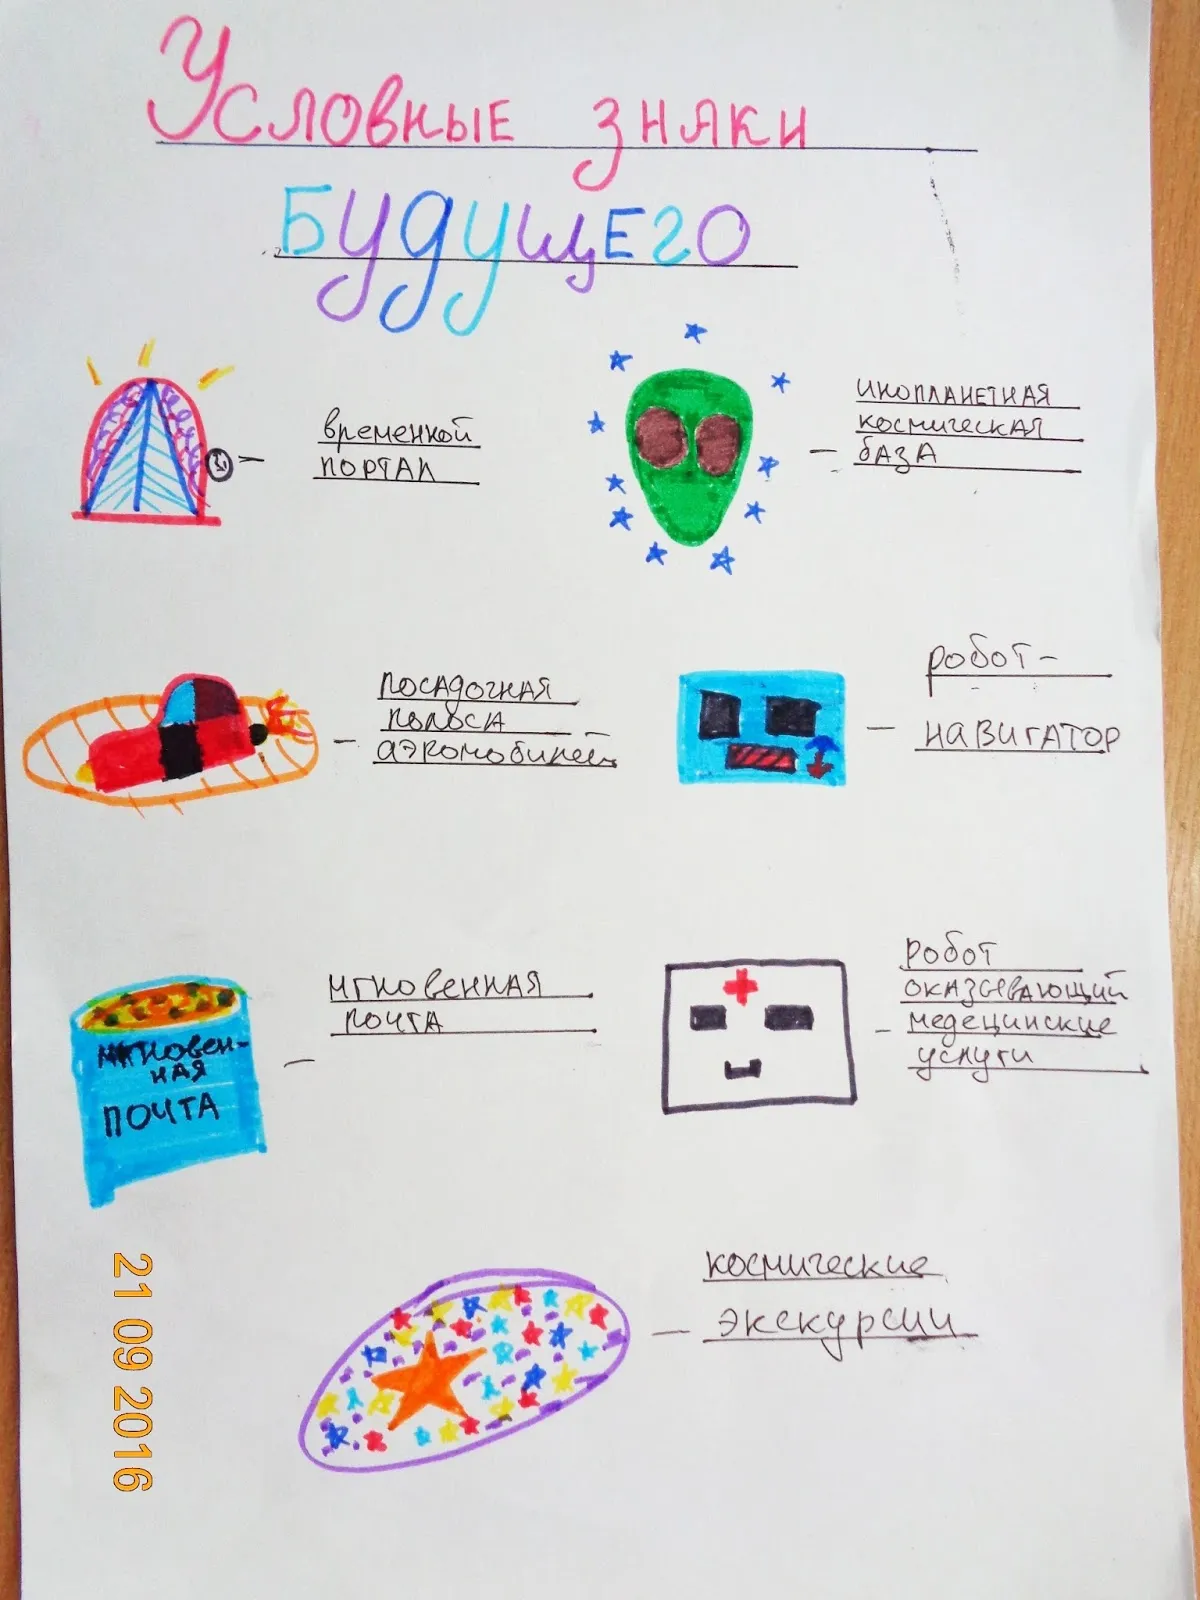 Условные знаки
Будущего
временной
портал
инопланетная
космическая
база
посадочная
полоса
аэромобилей
робот-
навигатор
мгновенная
почта
мгновен-
ная
почта
робот
оказывающий
медецинские
услуги
космические
экскурсии
21 09 2016